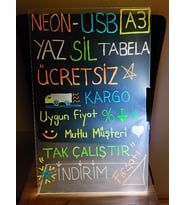 NEON-USB A3
YAZ SİL TABELA
ÜCRETSİZ
KARGO
Uygun Fiyat %
Mutlu Müşteri
TAK ÇALIŞTIR
İNDİRİM